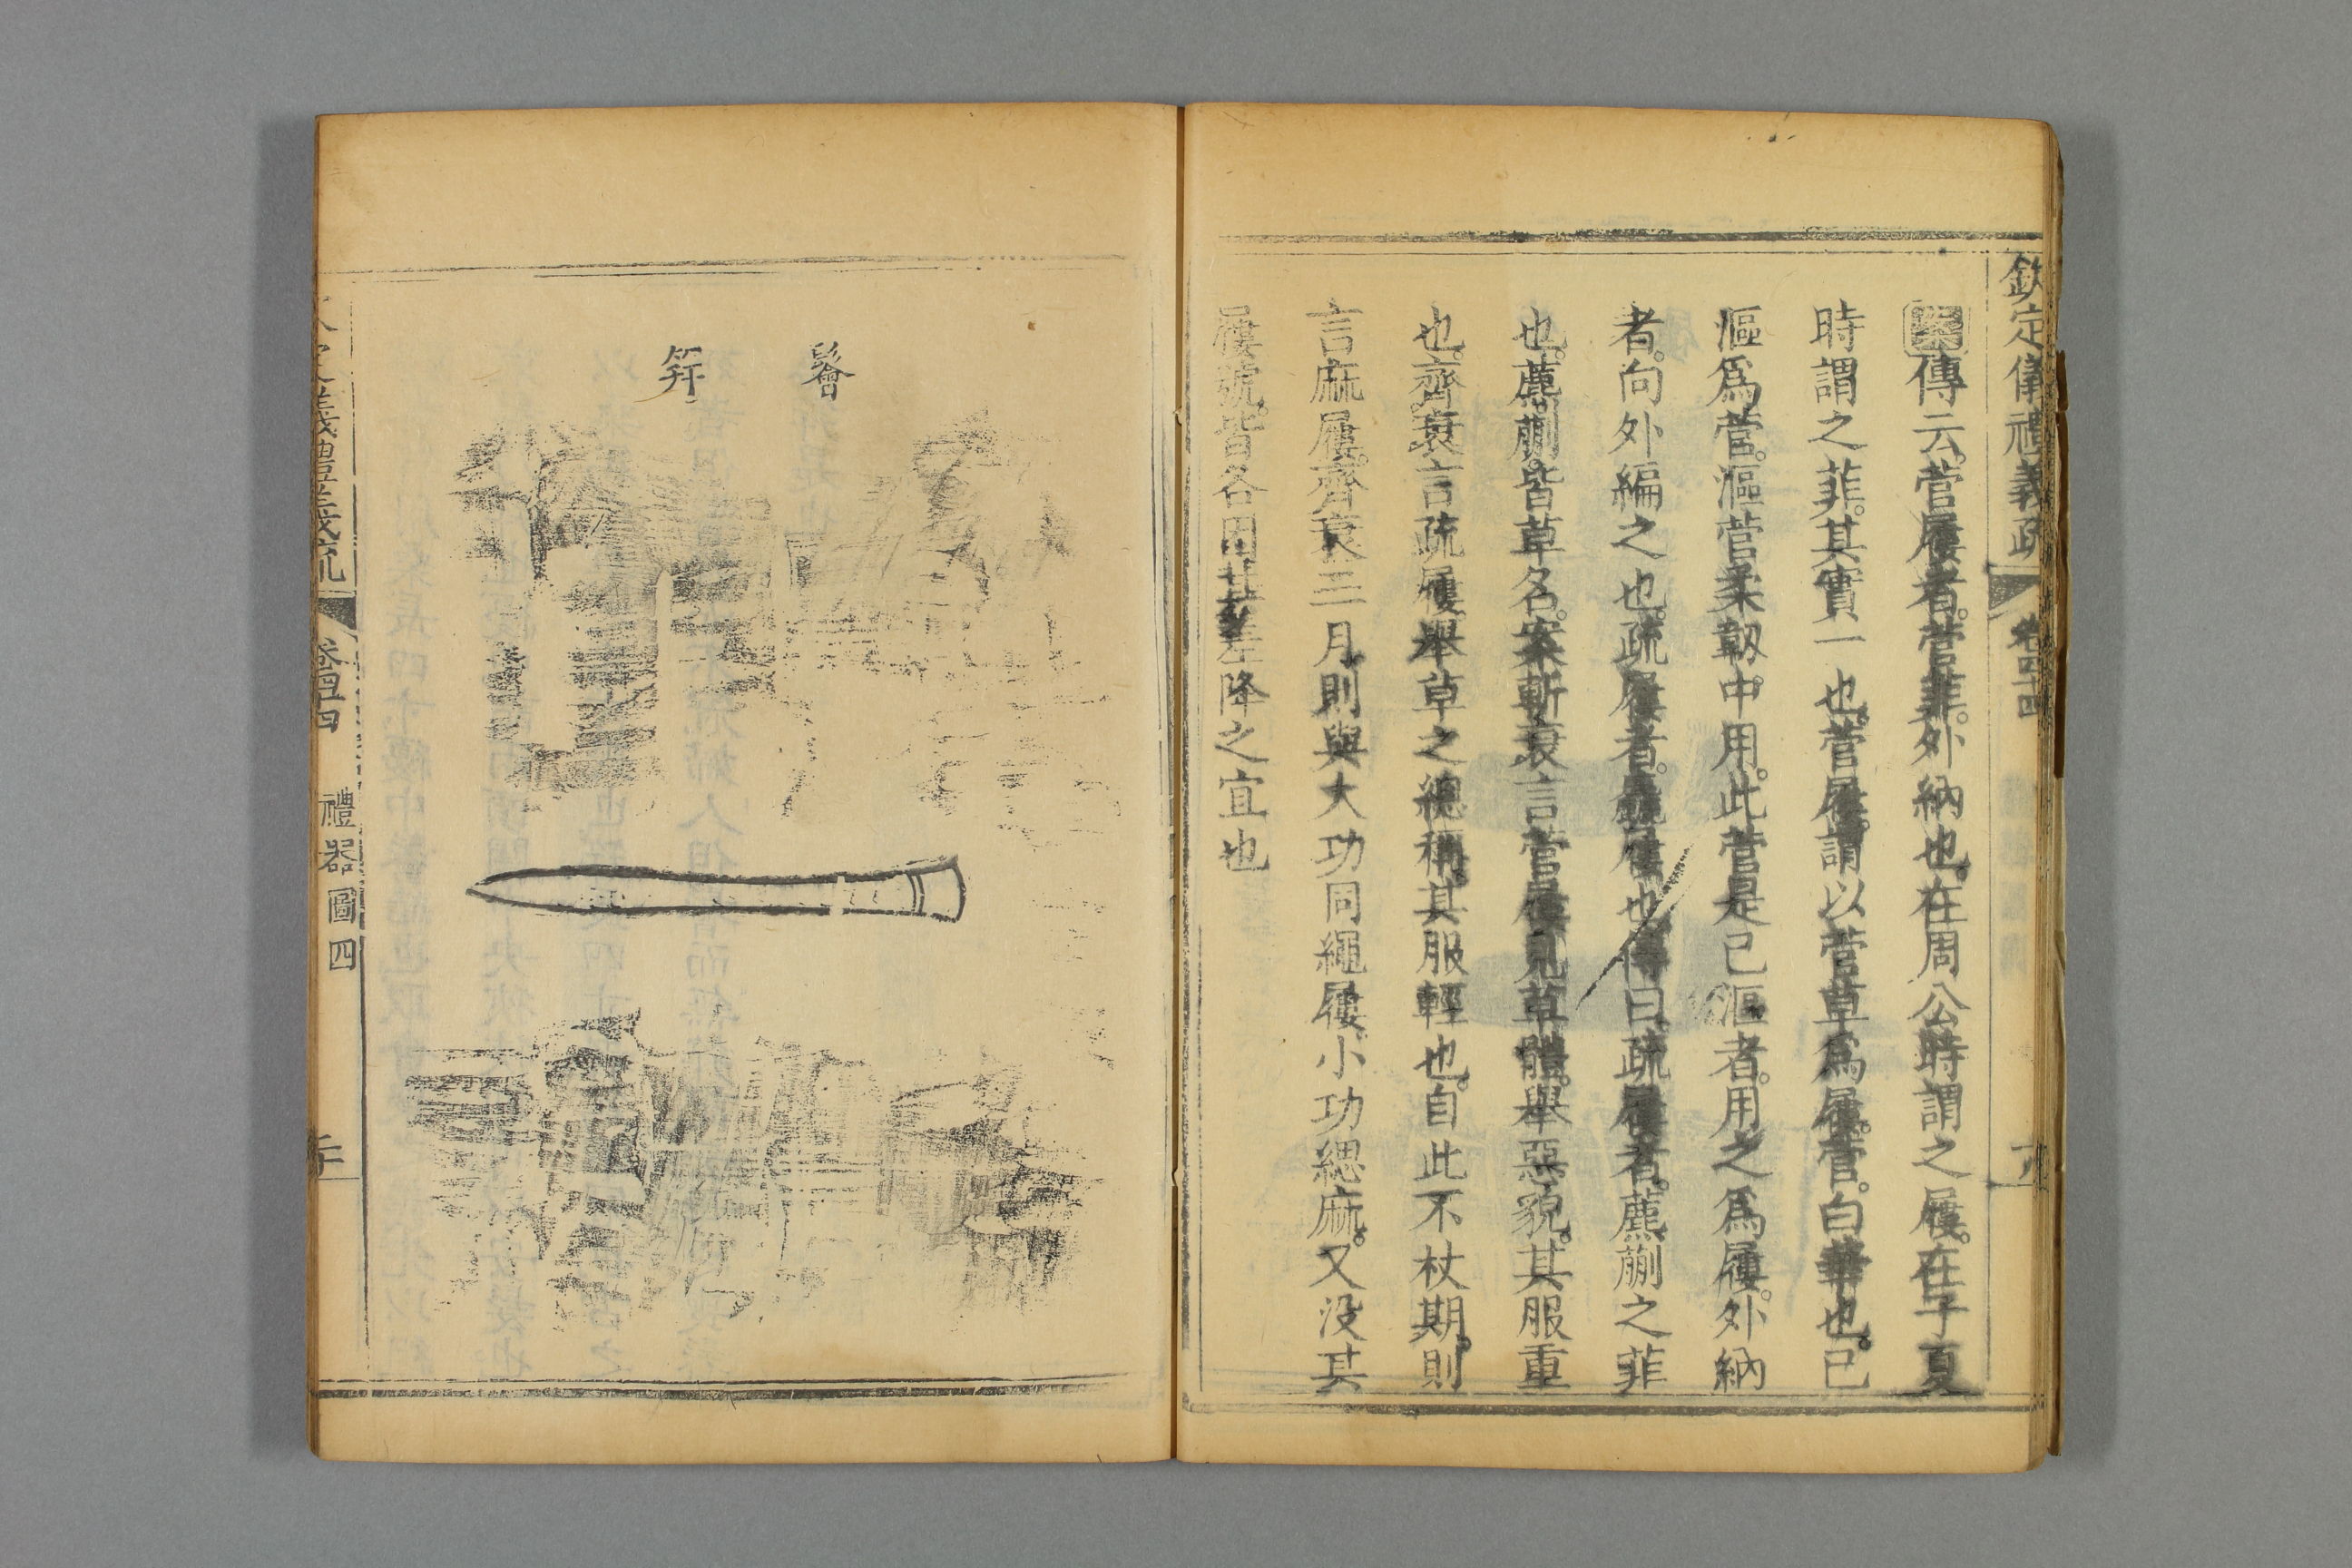 欽定儀禮義疏 卷四十四
案傳云。菅屨者。菅菲。外納也。在周公時謂之屨。在子夏
時謂之菲。其實一也。菅屨。謂以菅草爲屨。菅。白華也。已
漚爲菅。漚菅柔韌。中用。此菅是已漚者。用之爲屨。外納
者。向外編之也。疏屨者。麤屨也。傳曰。疏屨者。藨蒯之菲
也。藨。蒯。皆草名。案斬衰言菅屨。見草體。舉惡貌。其服重
也。齊衰言疏屨。舉草之總稱。其服輕也。自此不杖期。則
言麻屨。齊衰三月則與大功同繩屨。小功緦麻。又没其
屨號。皆各因其差降之宜也
鬠
笄
義禮義疏 卷四十四 禮器圖四